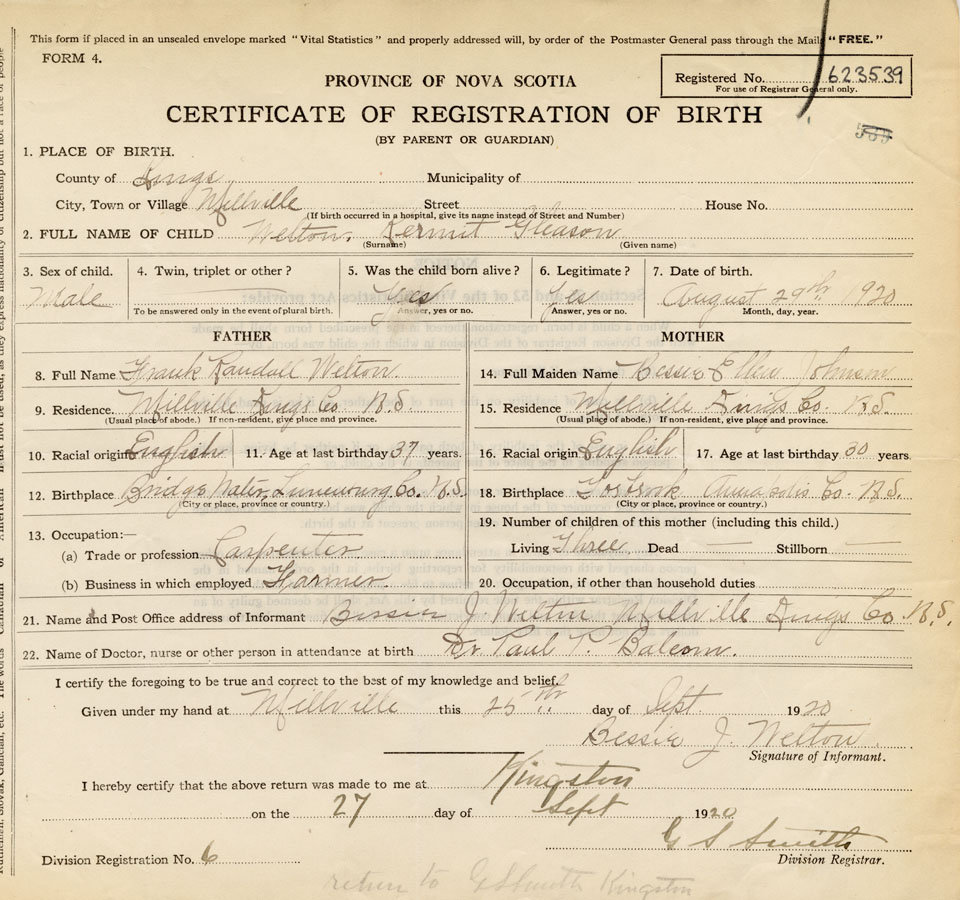 This form if placed in an unsealed envelope marked "Vital Statistics" and properly addressed will, by order of the Postmaster General pass through the Mail "FREE."
FORM 4.
Registered No. 623539
For use of Registrar General only.
PROVINCE OF NOVA SCOTIA
CERTIFICATE OF REGISTRATION OF BIRTH
(BY PARENT OR GUARDIAN)
1. PLACE OF BIRTH.
County of Kings Municipality of
City, Town or Village Millville Street House No.
(If birth occurred in a hospital, give its name instead of Street and Number)
2. FULL NAME OF CHILD Welton, Kermit Gleason
(Surname) (Given name)
3. Sex of child. 4. Twin, triplet or other? 5. Was the child born alive? 6. Legitimate? 7. Date of birth.
Male Yes Yes August 29th 920
To be answered only in the event of plural birth. Answer, yes or no. Answer, yes or no. Month, day, year.
FATHER MOTHER
8. Full Name Frank Randall Welton 14. Full Maiden Name Bessie Johnson
9. Residence. Millville Kings Co N.S. 15. Residence Millville Kings Co. N.S.
(Usual place of abode.) If non-resident, give place and province. (Usual place of abode.) If non-resident, give place and province.
10. Racial origin English 11. Age at last birthday 37 years. 16. Racial origin English 17. Age at last birthday 30 years.
12. Birthplace Bridge Water, Lunenburg Co. N.S. 18. Birthplace Annapolis Co. N.S.
(City or place, province or country.) (City or place, province or country.)
13. Occupation:— 19. Number of children of this mother (including this child.)
(a) Trade or profession Carpenter Living Three Dead Stillborn
(b) Business in which employed Farmer 20. Occupation, if other than household duties
21. Name and Post Office address of Informant Bessie J. Welton Millville Kings Co. N.S.
22. Name of Doctor, nurse or other person in attendance at birth Dr. Paul P. Balcom.
I certify the foregoing to be true and correct to the best of my knowledge and belief.
Given under my hand at Millville this 25th day of Sept. 1920
Bessie J. Welton
Signature of Informant.
I hereby certify that the above return was made to me at Kingston
on the 27 day of Sept 1920
G S Smith
Division Registration No. 6 Division Registrar.
return to G S Smith Kingston